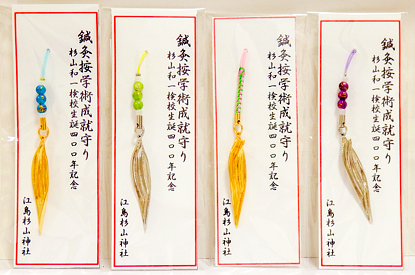 鍼灸按学術成就守り
杉山和一検校生誕四〇〇年記念
江島杉山神社
鍼灸按学術成就守り
杉山和一検校生誕四〇〇年記念
江島杉山神社
鍼灸按学術成就守り
杉山和一検校生誕四〇〇年記念
江島杉山神社
鍼灸按学術成就守り
杉山和一検校生誕四〇〇年記念
江島杉山神社